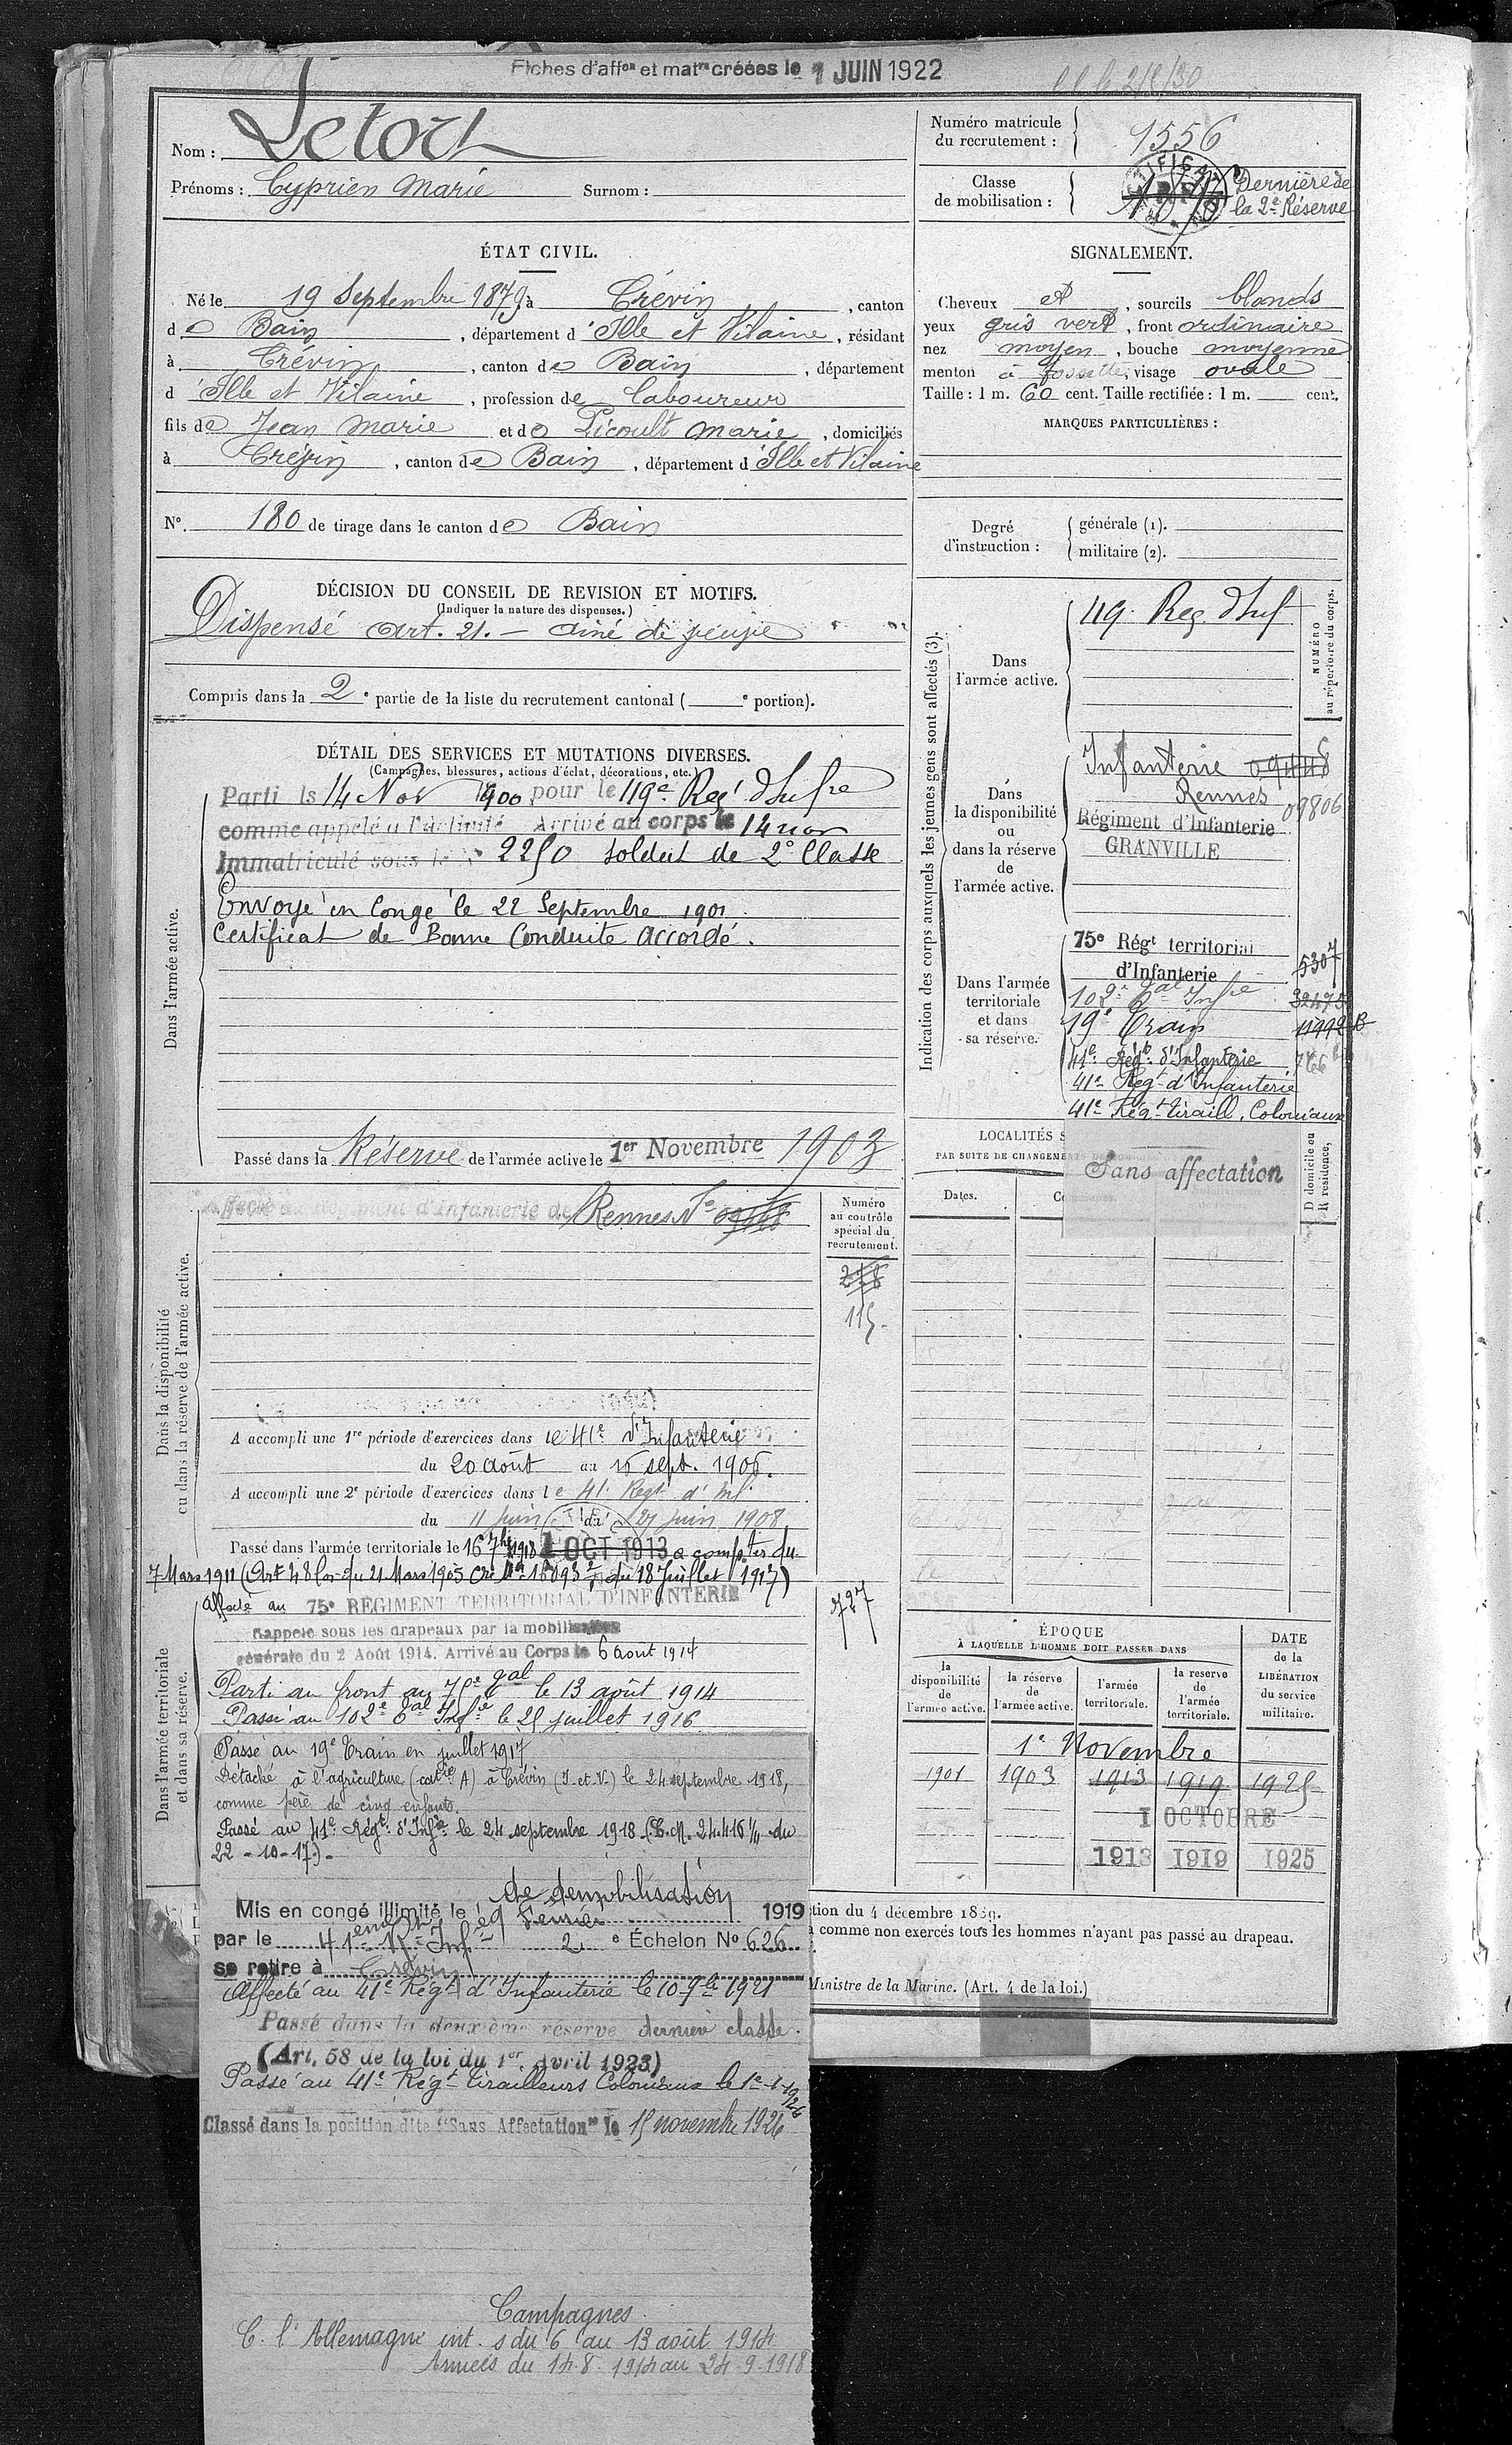 Fiches d'affon et matre créées le 1 JUIN 1922
Nom : Letort
Prénoms : Cyprien Marie Surnom :
Numéro matricule du recrutement : 1556
Classe de mobilisation : Dernière de la 2e Réserve
ÉTAT CIVIL.
Né le 19 Septembre 1879 à Crévin, canton
de Bain, département d'Ille et Vilaine, résidant
à Crévin, canton de Bain, département
d'Ille et Vilaine, profession de laboureur
fils de Jean Marie et de Picoult Marie, domiciliés
à Crévin, canton de Bain, département d'Ille et Vilaine
No. 180 de tirage dans le canton de Bain
SIGNALEMENT.
Cheveux et, sourcils blonds
yeux gris vert, front ordinaire
nez moyen, bouche moyenne
menton à fossette, visage ovale
Taille : 1 m. 60 cent. Taille rectifiée : 1 m. cent.
MARQUES PARTICULIÈRES :
Degré d'instruction : générale (1).
militaire (2).
DÉCISION DU CONSEIL DE REVISION ET MOTIFS.
(Indiquer la nature des dispenses.)
Dispensé Art. 21. –
Compris dans la 2e partie de la liste du recrutement cantonal ( e portion).
DÉTAIL DES SERVICES ET MUTATIONS DIVERSES.
(Campagnes, blessures, actions d'éclat, décorations, etc.)
Dans l'armée active.
Parti le 14 Nov 1900 pour le 119e Regt d'Infre
comme appelé à l'activité Arrivé au corps le 14 nov
Immatriculé sous le 2250 soldat de 2e Classe
Envoyé en Congé le 22 Septembre 1901.
Certificat de Bonne Conduite Accordé.
Passé dans la Réserve de l'armée active le 1er Novembre 1903
Indication des corps auxquels les jeunes gens sont affectés (3).
NUMÉRO au répertoire du corps.
Dans l'armée active.
119. Reg d'Inf
Dans la disponibilité ou dans la réserve de l'armée active.
Infanterie
Rennes 09806
Régiment d'Infanterie
GRANVILLE
Dans l'armée territoriale et dans sa réserve.
75e Régt territorial
d'Infanterie 5307
102e Tal Infre 32475
19e Train 11992 B
41e Régt d'Infanterie
41e Régt d'Infanterie
41e Régt Tiraill. Coloniaux
Sans affectation
LOCALITÉS S
PAR SUITE DE CHANGEMEN
Dates.
D domicile ou R résidence.
Dans la disponibilité ou dans la réserve de l'armée active.
Régiment d'Infanterie de Rennes No
Numéro au contrôle spécial du recrutement.
278
115.
A accompli une 1re période d'exercices dans le 41e d'Infanterie
du 20 août au 16 sept. 1906.
A accompli une 2e période d'exercices dans le 41. Regt d'Inf.
du 11 Juin au 27 juin 1908
Passé dans l'armée territoriale le 16 7bre 1913 1 OCT 1913 à compter du
7 Mars 1911 (Art 48 loi du 21 Mars 1905 du 18 Juillet 1917)
Dans l'armée territoriale et dans sa réserve.
Affecté au 75e REGIMENT TERRITORIAL D'INFANTERIE
727
Rappelé sous les drapeaux par la mobilisation
générale du 2 Août 1914. Arrivé au Corps le 6 août 1914
Parti au front au 75e Tal le 13 août 1914
Passé au 102e Tal Infie le 25 juillet 1916
Passé au 19e Train en juillet 1917
Détaché à l'agriculture (catrie A) à Crévin (I.-et-V.) le 24 septembre 1918,
comme père de cinq enfants.
Passé au 41e Régt d'Infie le 24 septembre 1918 (C.M. 24.416 1/11 du
22-10-17).
Mis en congé illimité de démobilisation le 9 Février 1919
par le 41eme Rt Infie 2e Échelon No 626
se retire à Crévin
Affecté au 41e Régt d'Infanterie le 10 9bre 1921
Passé dans la deuxième réserve dernière classe.
(Art. 58 de la loi du 1er Avril 1923)
Passé au 41e Régt Tirailleurs Coloniaux le 1e-1-1926
Classé dans la position dite "Sans Affectation" le 15 novembre 1926
ÉPOQUE À LAQUELLE L'HOMME DOIT PASSER DANS
la disponibilité de l'armée active.
la réserve de l'armée active.
l'armée territoriale.
la réserve de l'armée territoriale.
DATE de la LIBÉRATION du service militaire.
1er Novembre
1901 1903 1913 1919 1925
1 OCTOBRE
1913 1919 1925
tion du 4 décembre 1889.
comme non exercés tous les hommes n'ayant pas passé au drapeau.
Ministre de la Marine. (Art. 4 de la loi.)
Campagnes.
C. l'Allemagne int. s du 6 au 13 août 1914
Armées du 14.8.1914 au 24.9.1918